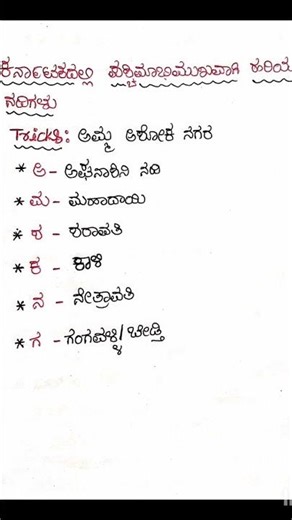 ಕರ್ನಾಟಕದಲ್ಲಿ ಪಶ್ಚಿಮಾಭಿಮುಖವಾಗಿ ಹರಿಯ
ನದಿಗಳು
Tricks: ಅಮ್ಮ ಅಶೋಕ ನಗರ
* ಅ - ಅಘನಾಶಿನಿ ನದಿ
* ಮ - ಮಹಾದಾಯಿ
* ಶ - ಶರಾವತಿ
* ಕ - ಕಾಳಿ
* ನ - ನೇತ್ರಾವತಿ
* ಗ - ಗಂಗವಳ್ಳಿ/ಬೇಡ್ತಿ